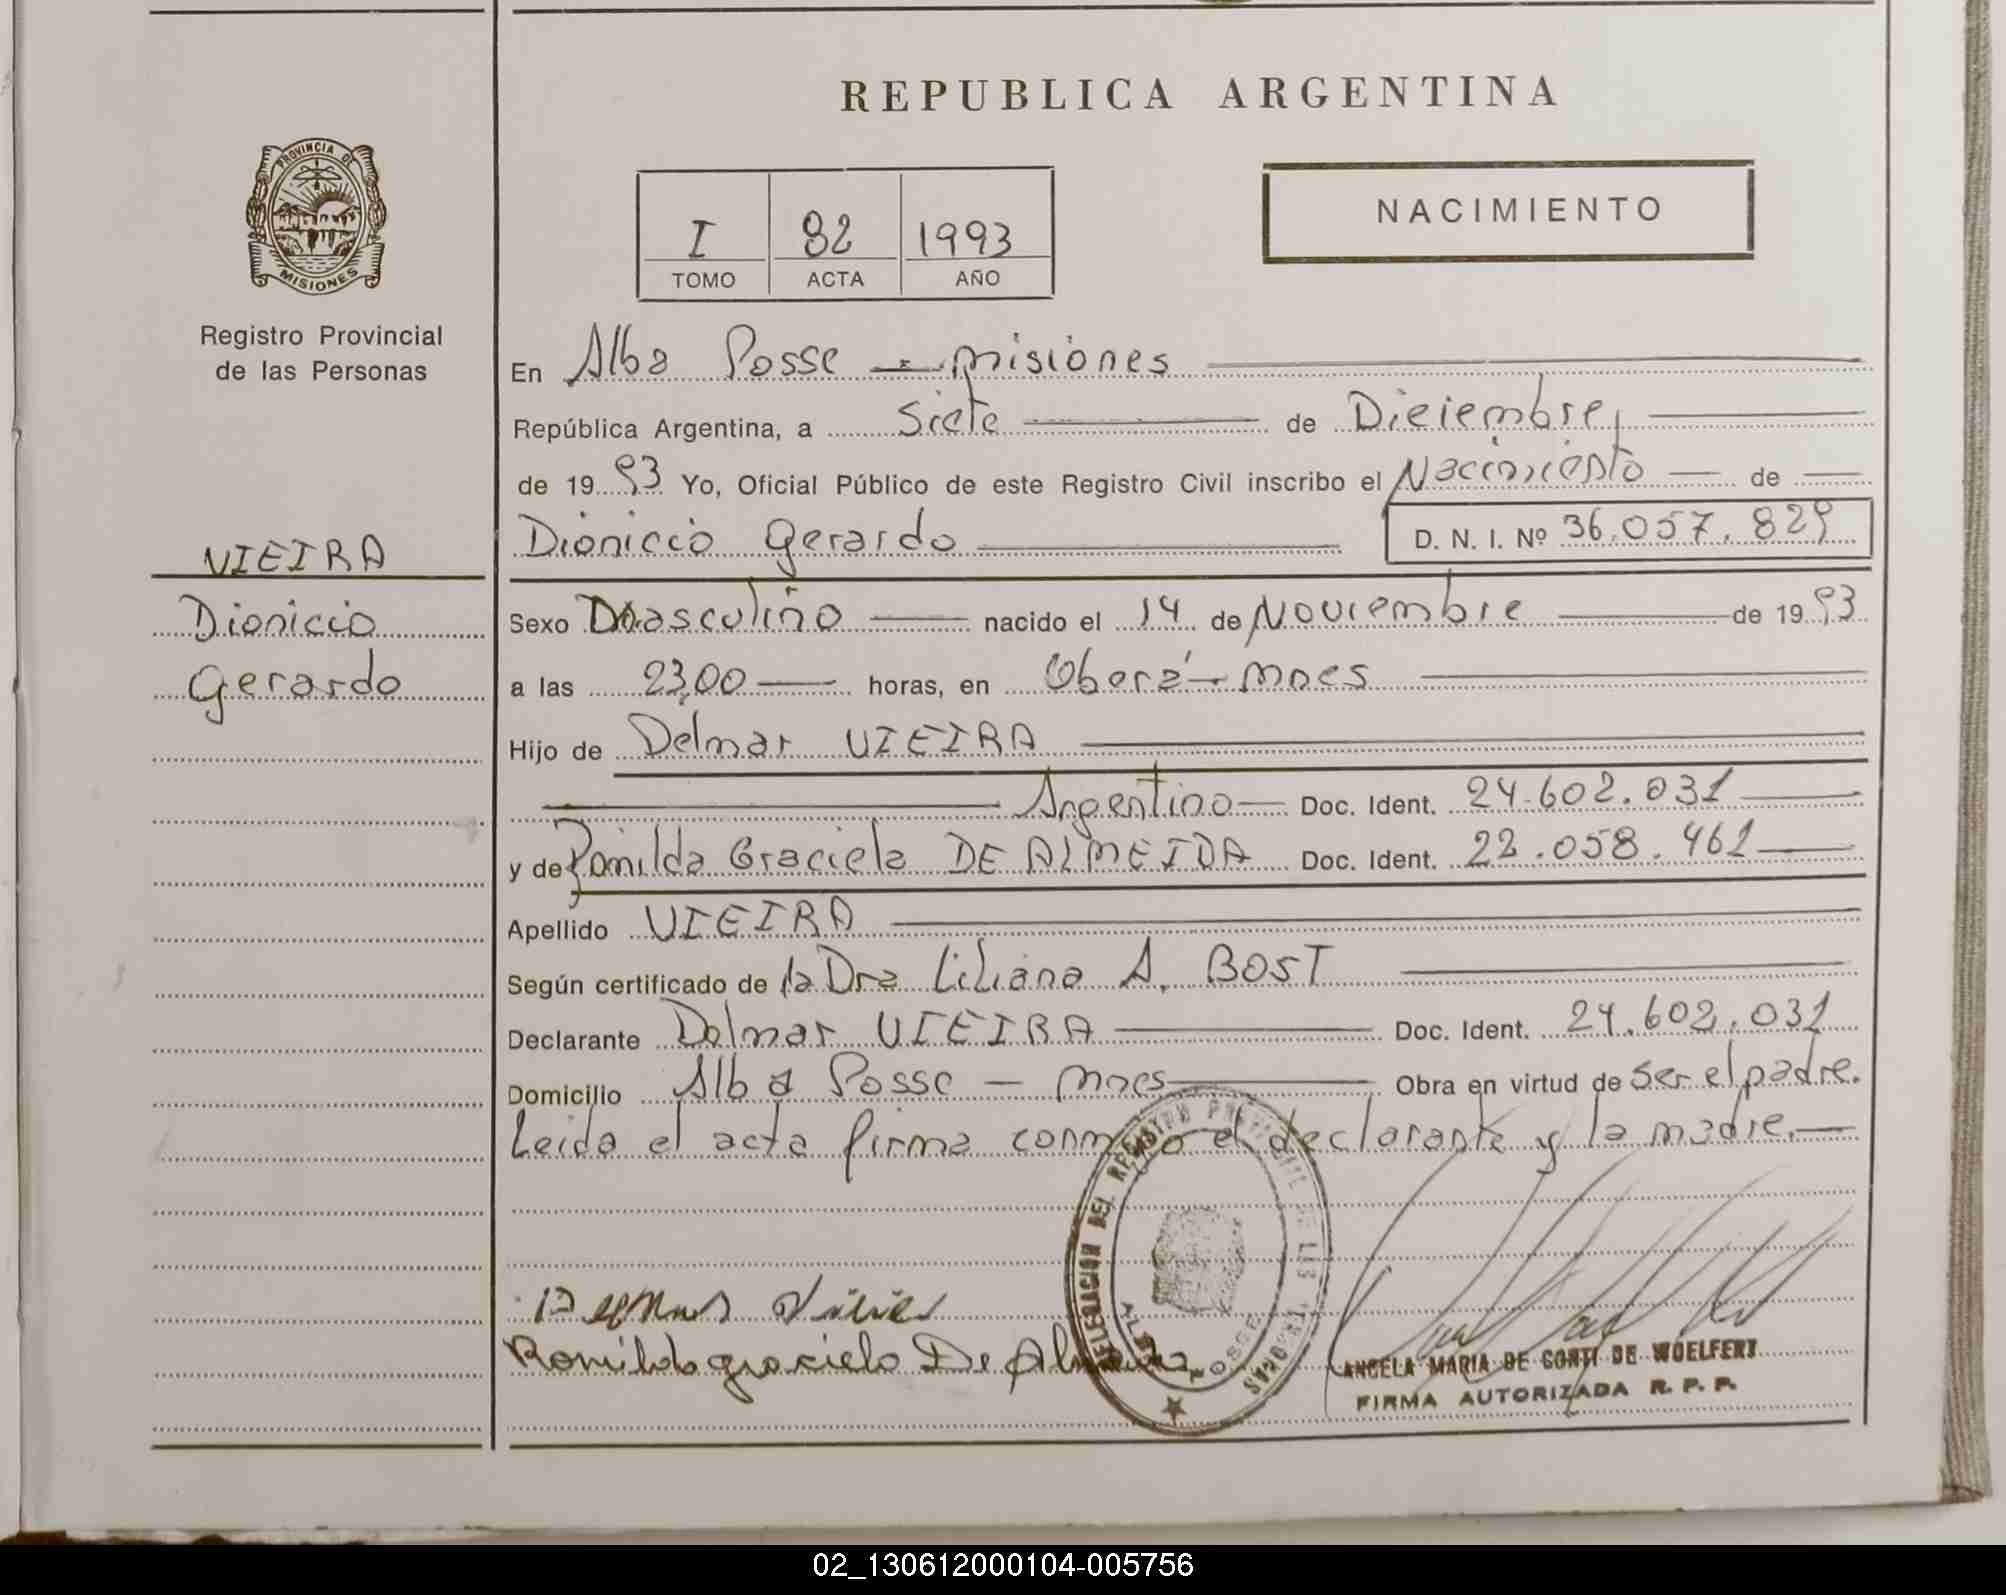 REPUBLICA ARGENTINA
PROVINCIA DE
MISIONES
Registro Provincial
de las Personas
I 82 1993
TOMO ACTA AÑO
NACIMIENTO
En Alba Posse - misiones
República Argentina, a Siete de Diciembre,
de 1993 Yo, Oficial Público de este Registro Civil inscribo el Nacimiento de
Dionicio Gerardo D. N. I. Nº 36.057.829
VIEIRA
Dionicio
Gerardo
Sexo Masculino nacido el 14 de Noviembre de 1993
a las 23,00 horas, en Oberá - mnes
Hijo de Delmar VIEIRA
Argentino Doc. Ident. 24.602.031
y de Romilda Graciela DE ALMEIDA Doc. Ident. 22.058.461
Apellido VIEIRA
Según certificado de la Dra Liliana A. BOST
Declarante Delmar VIEIRA Doc. Ident. 24.602.031
Domicilio Alba Posse - mnes Obra en virtud de ser el padre.
Leida el acta firma conmigo el declarante y la madre.
DELEGACION DEL REGISTRO PROVINCIAL DE LAS PERSONAS
ALBA POSSE
Delmar Vieira
Romilda graciela De Almeida
ANGELA MARIA DE CORTI DE WOELFERT
FIRMA AUTORIZADA R. P. P.
02_130612000104-005756